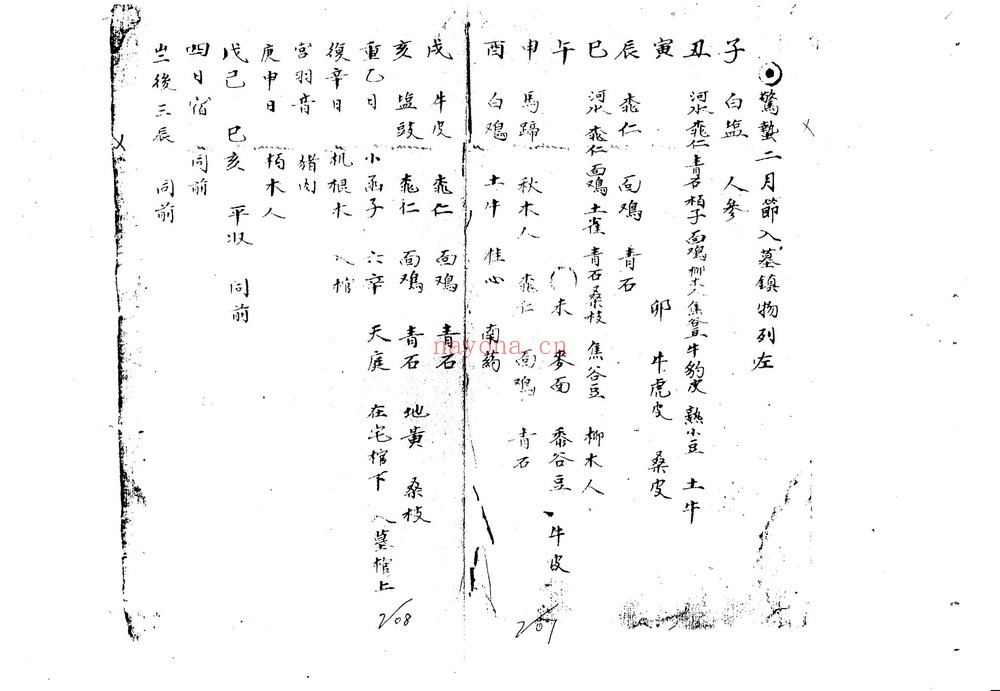 驚蟄二月節入墓鎮物列左
子 白塩 人參
丑 河水 桃仁 青石 柏子 面鳮 柳木人 焦谷豆 牛豹皮 熟小豆 土牛
寅 卯 牛虎皮 桑皮
辰 桃仁 面鳮 青石
巳 河水 桃仁 面鳮 土雀 青石 桑枝 焦谷豆 柳木人
午 未 麥面 黍谷豆 牛皮
申 馬蹄 秋木人 桃仁 面鳮 青石
酉 白鳮 土牛 桂心 南葯
戌 牛皮 桃仁 面鳮 青石
亥 塩豉 桃仁 面鳮 青石 地黄 桑枝
重乙日 小函子 六辛 天庭 在宅棺下 入墓棺上
復辛日 机根木 入棺
宮羽音 猪肉
庚申日 柏木人
戊己 巳亥 平收 同前
四日宿 同前
後三辰 同前
2/07
2/08
naydna.cn